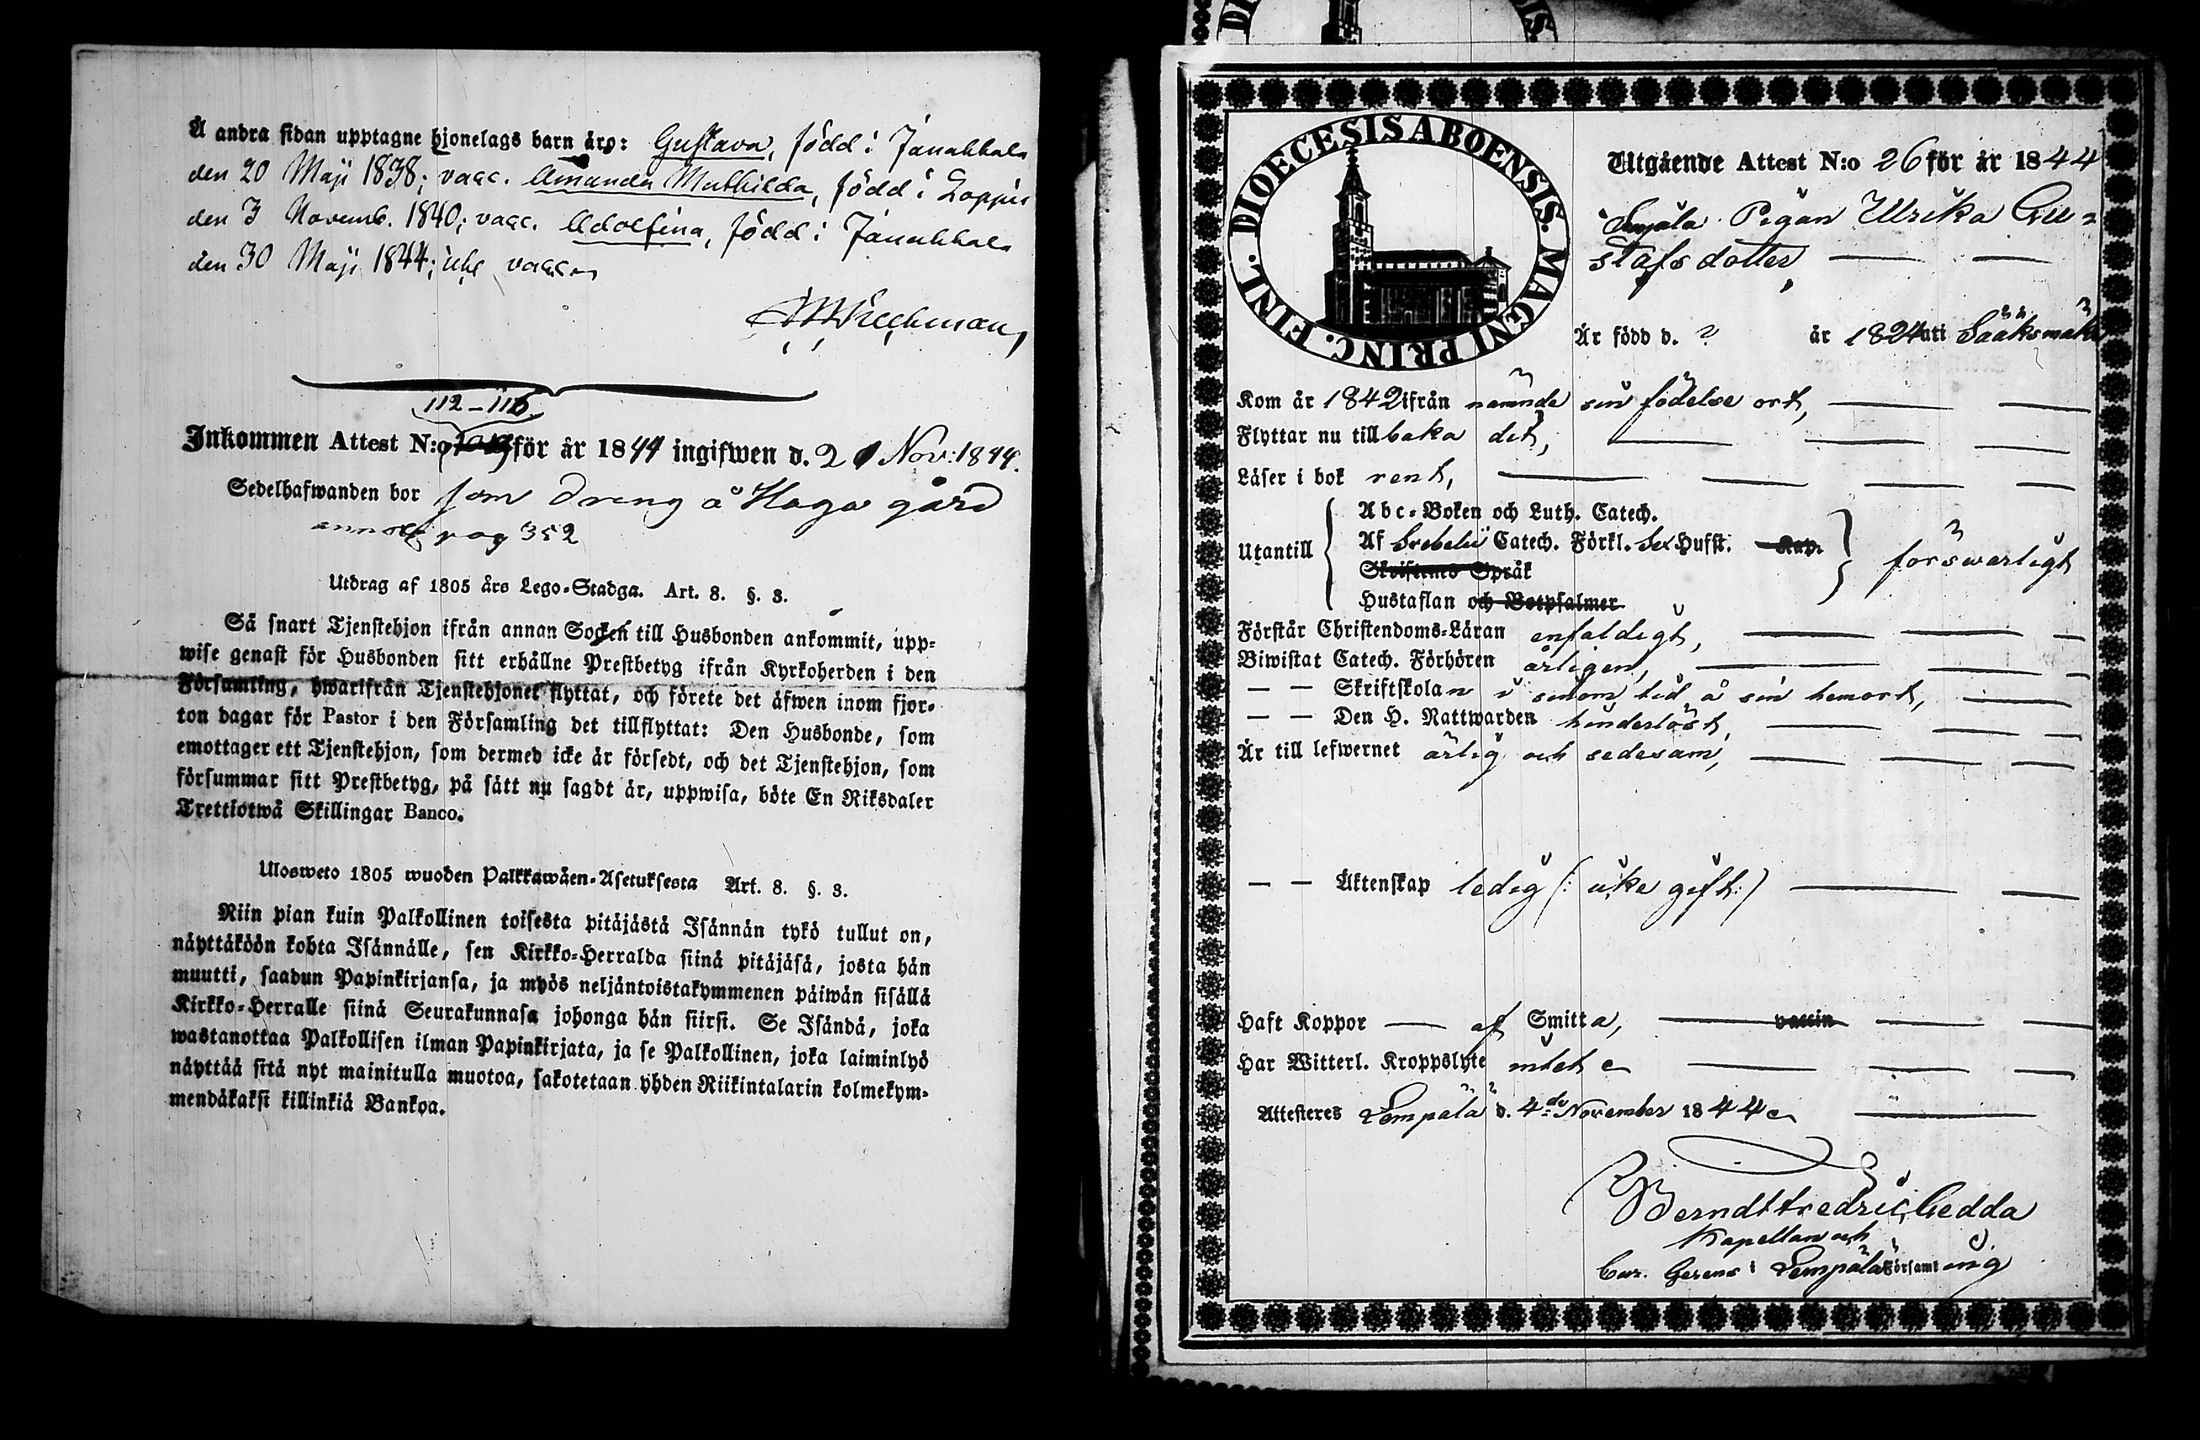 Å andra sidan upptagne hjonelags barn äro: Gustava, född i Janakkala
den 20 Maji 1838; vacc. Amanda Mathilda, född i Loppis
den 3 Novemb. 1840; vacc. Adolfina, född i Janakkala
den 30 Maji 1844; icke vacc.
112–116
Inkommen Attest N:o för år 1844 ingifwen d. 21 Nov: 1844.
Sedelhafwanden bor som dreng å Haga gård
pag 352
Utdrag af 1805 års Lego-Stadga. Art. 8. §. 3.
Så snart Tjenstehjon ifrån annan Socken till Husbonden ankommit, upp-
wise genast för Husbonden sitt erhållne Prestbetyg ifrån Kyrkoherden i den
Församling, hwarifrån Tjenstehjonet flyttat, och förete det äfwen inom fjor-
ton dagar för Pastor i den Församling det tillflyttat: Den Husbonde, som
emottager ett Tjenstehjon, som dermed icke är försedt, och det Tjenstehjon, som
försummar sitt Prestbetyg, på sätt nu sagdt är, uppwisa, böte En Riksdaler
Trettiotwå Skillingar Banco.
Ulosweto 1805 wuoden Palkkawäen-Asetuksesta Art. 8. §. 3.
Niin pian kuin Palkollinen toisesta pitäjästä Isännän tykö tullut on,
näyttäköön kohta Isännälle, sen Kirkko-Herralda siinä pitäjäsä, josta hän
muutti, saadun Papinkirjansa, ja myös neljäntoistakymmenen päiwän sisällä
Kirkko-Herralle siinä Seurakunnasa johonga hän siirsi. Se Isändä, joka
wastanottaa Palkollisen ilman Papinkirjata, ja se Palkollinen, joka laiminlyö
näyttää sitä nyt mainitulla muotoa, sakotetaan yhden Riikintalarin kolmekym-
mendäkaksi killinkiä Bankoa.
DIOECESIS ABOENSIS. MAGNI PRINC. FINL.
Utgående Attest N:o 26 för år 1844
Pigan Ulrika Gu-
stafsdotter,
Är född d. ? år 1824 uti Sääksmäki
Kom år 1842 ifrån nämnde sin födelse ort,
Flyttar nu tillbaka dit,
Läser i bok rent,
Utantill
Abc-Boken och Luth. Catech.
Af Svebelii Catech. Förkl. Sex Hufst. Kap.
Skriftenes Språk
Hustaflan och Botpsalmer
försvarligt
Förstår Christendoms-Läran enfaldigt,
Biwistat Catech. Förhören årligen,
— — Skriftskolan i sinom tid å sin hemort,
— — Den H. Nattwarden hinderlöst,
Är till lefwernet ärlig och sedesam,
— — Äktenskap ledig (: icke gift :)
Haft Koppor — af Smitta, vaccin
Har Witterl. Kroppslyte intet
Attesteres Lempälä d. 4de November 1844
Berndt Fredric Gedda
Kapellan och
Cur. Gerens i Lempälä Församling